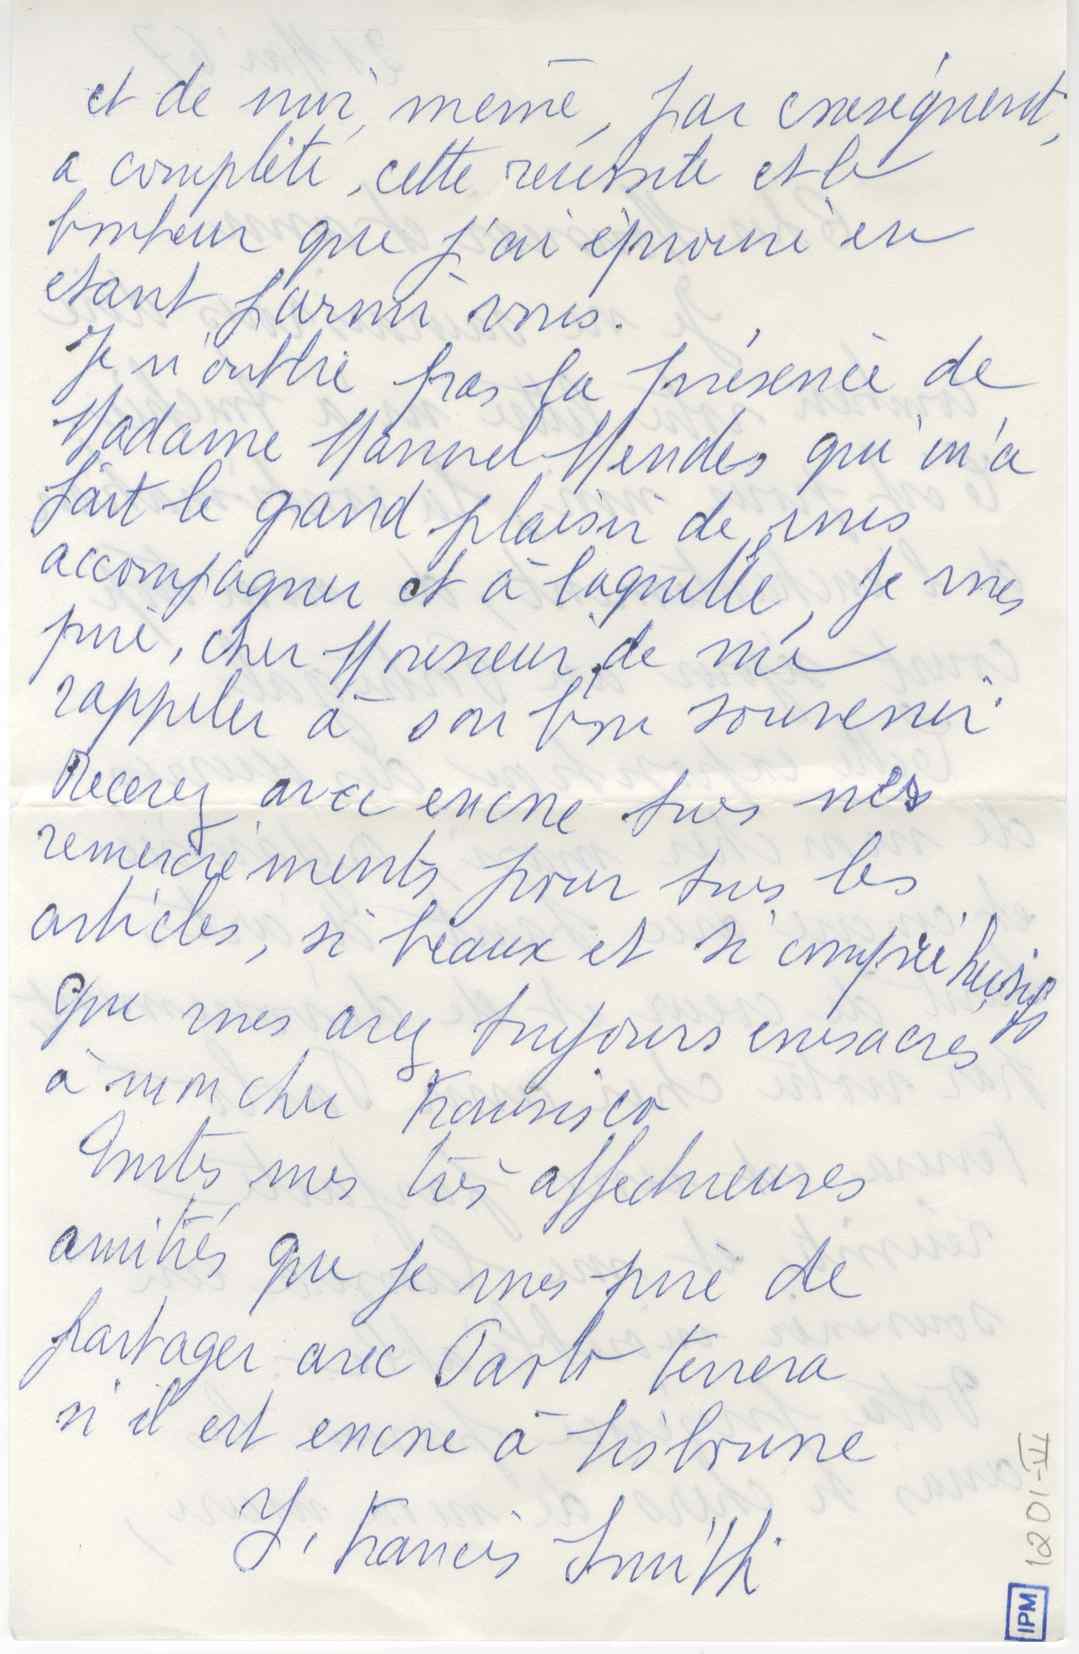 et de moi même, par conséquent,
a complété, cette réussite et le
bonheur que j'ai éprouvé en
etant parmi vous.
Je n'oublie pas la présence de
Madame Manuel Mendes qui m'a
fait le grand plaisir de vous
accompagner et à laquelle, je vous
prie, cher Monsieur, de me
rappeler à son bon souvenir.
Recevez avec encore tous mes
remerciements pour tous les
articles, si beaux et si compréhensifs
que vous avez toujours consacrés
à mon cher Francisco
Toutes mes très affectueuses
amitiés que je vous prie de
partager avec Paolo Ferrera
si il est encore à Lisbonne
Y. Francis Smith
1201-VI
IPM